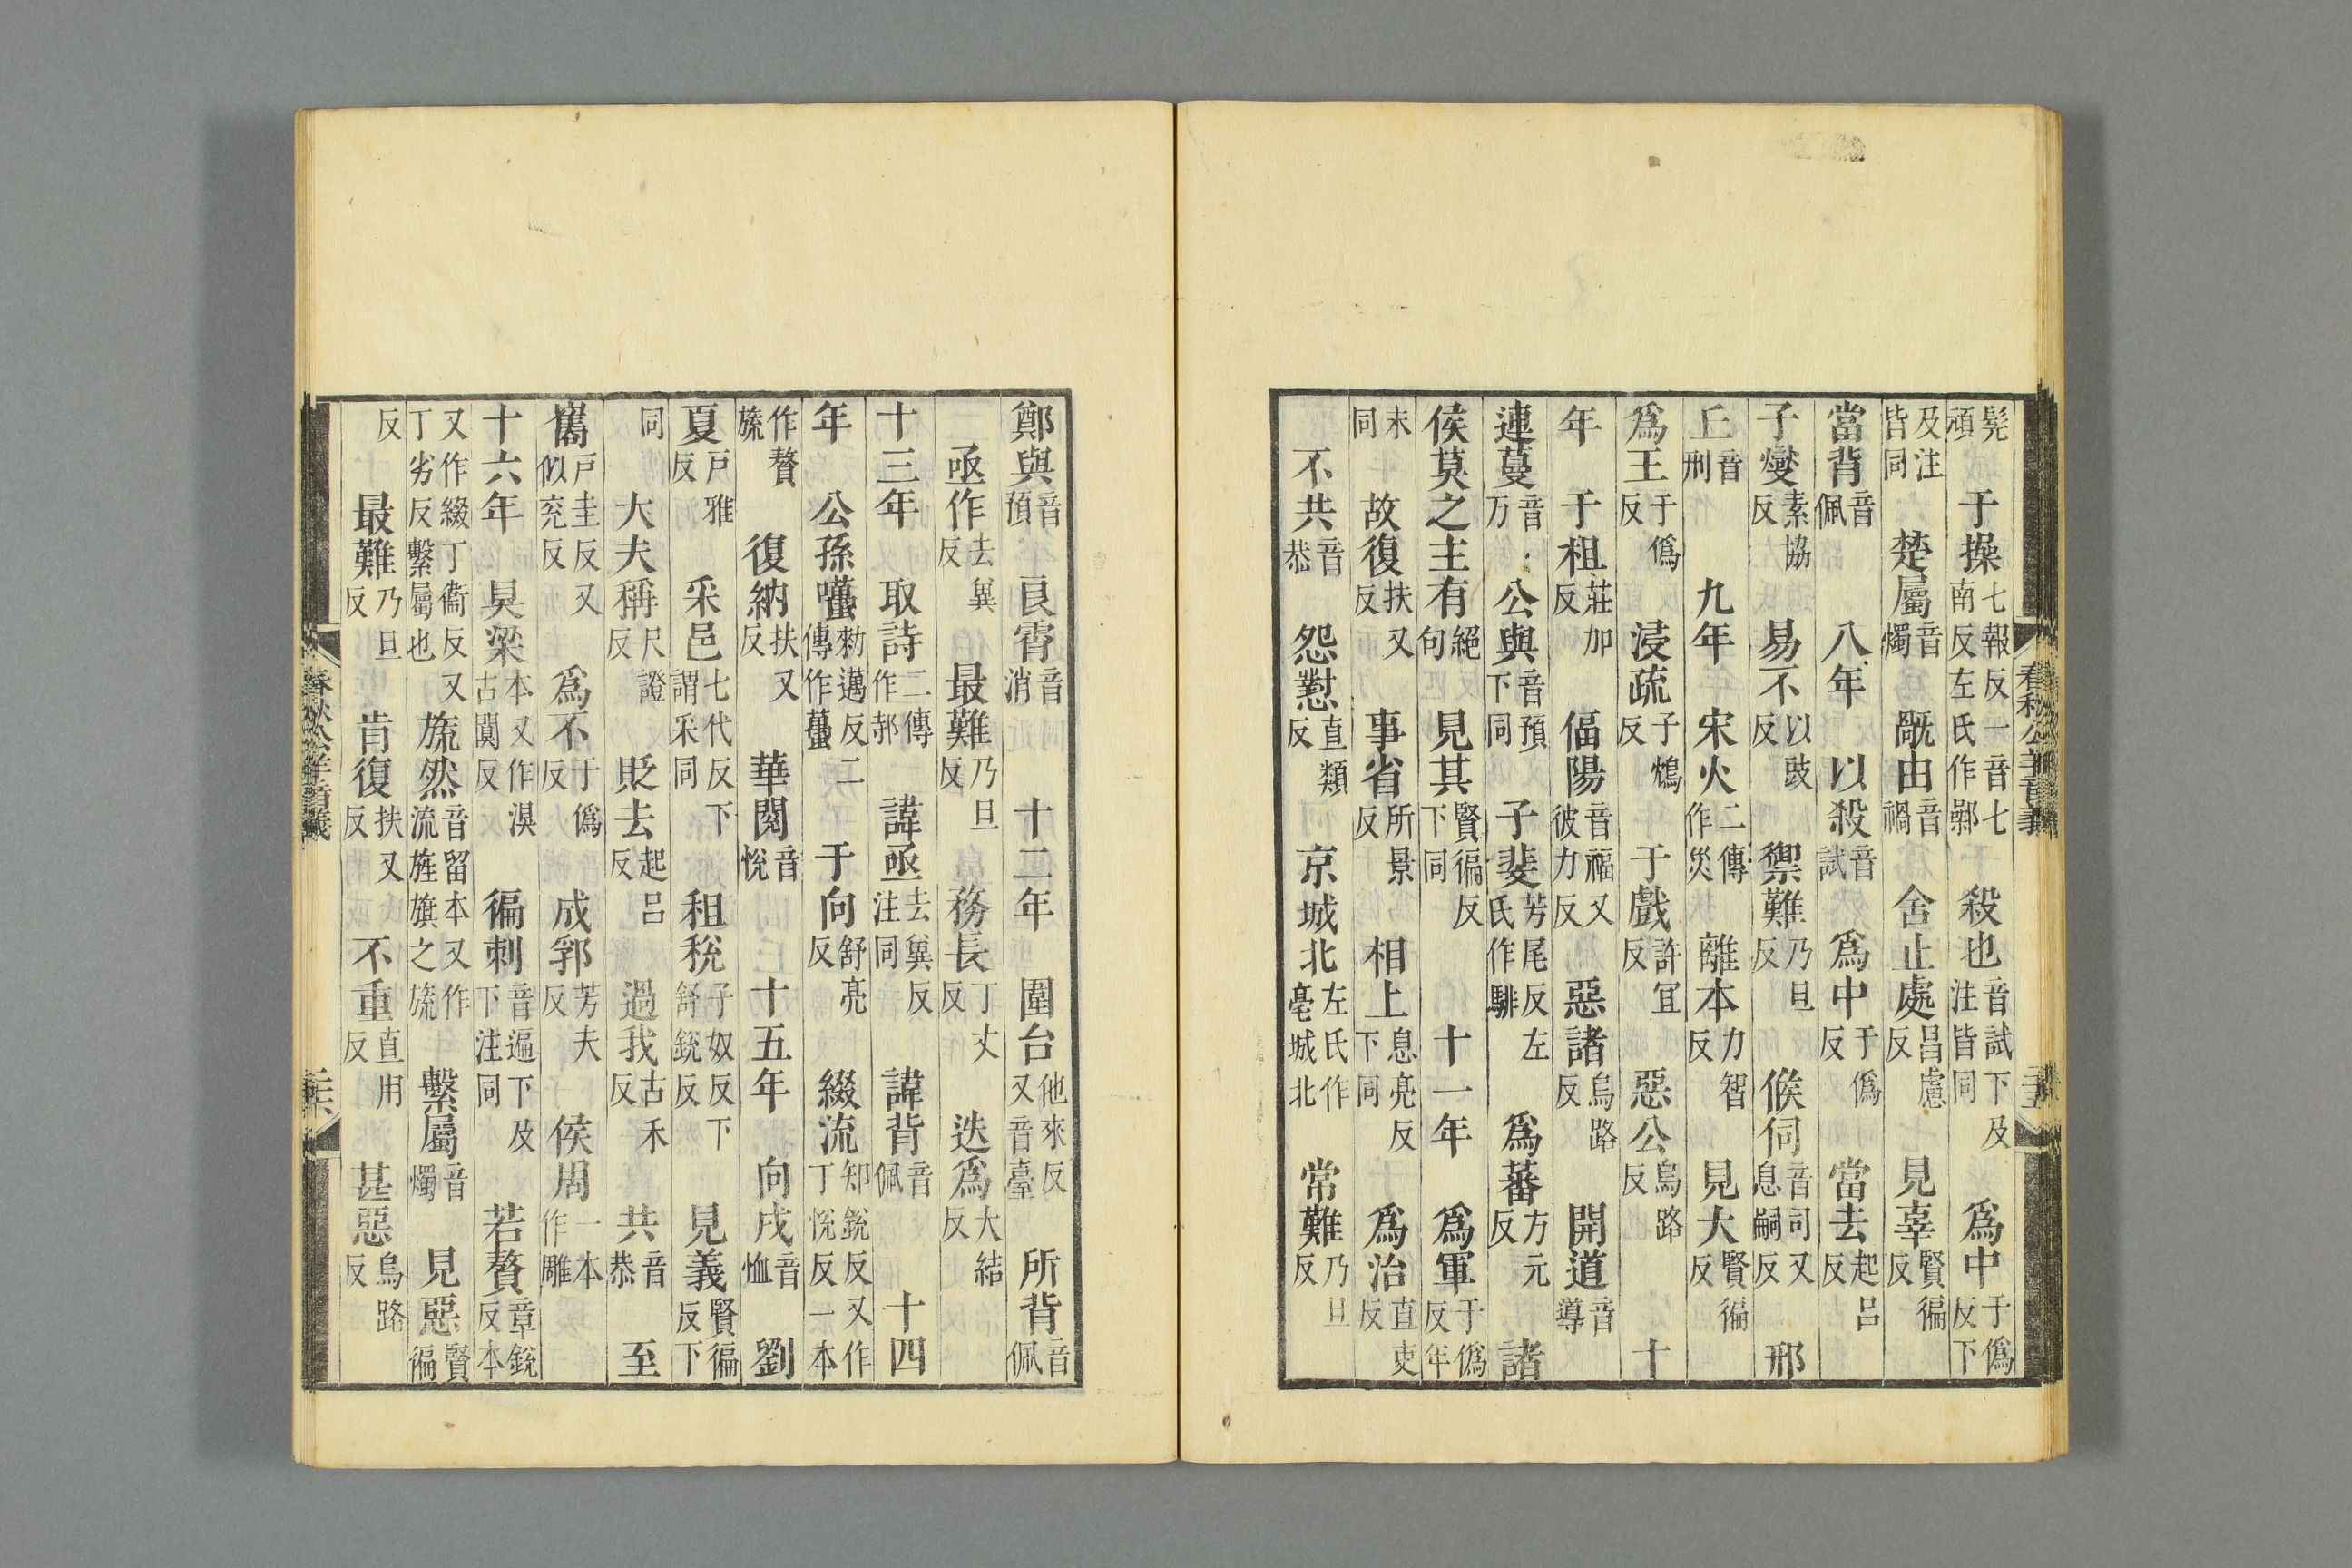 髠頑　于操七報反一音七南反左氏作鄵　殺也音試下及注皆同　爲中于僞反下
及注皆同　楚屬音燭　旤由音禍　舍止處昌慮反　見辜賢徧反
當背音佩　八年　以殺音試　爲中于僞反　當去起呂反
子燮素協反　易不以豉反　禦難乃旦反　候伺音司又息嗣反　邢
丘音刑　九年　宋火二傳作災　離本力智反　見大賢徧反
爲王于僞反　浸疏子鴆反　于戲許宜反　惡公烏路反　十
年　于柤莊加反　偪陽音福又彼力反　惡諸烏路反　開道音導
連蔓音万　公與音預下同　子斐芳尾反左氏作騑　爲蕃方元反　諸
侯莫之主有絕句　見其賢徧反下同　十一年　爲軍于僞反年
末同　故復扶又反　事省所景反　相上息亮反下同　爲治直吏反
不共音恭　怨懟直類反　京城北左氏作亳城北　常難乃旦反
鄭與音預　良霄音消　十二年　圍台他來反又音臺　所背音佩
亟作去冀反　最難乃旦反　務長丁丈反　迭爲大結反
十三年　取詩二傳作邿　諱亟去冀反注同　諱背音佩　十四
年　公孫囆勑邁反二傳作蠆　于向舒亮反　綴流知銳反又丁悅反一本作
作贅旒　復納扶又反　華閱音悅　十五年　向戌音恤　劉
夏戶雅反　采邑七代反下謂采同　租稅子奴反下舒銳反　見義賢徧反下
同　大夫稱尺證反　貶去起呂反　過我古禾反　共音恭　至
巂戶圭反又似兖反　爲不于僞反　成郛芳夫反　侯周一本作雕
十六年　昊梁本又作湨古闃反　徧刺音遍下及下注同　若贅章銳反本
又作綴丁衞反又丁劣反繫屬也　旒然音留本又作流旌旗之旒　繫屬音燭　見惡賢徧
反　最難乃旦反　肯復扶又反　不重直用反　甚惡烏路反
春秋公羊音義